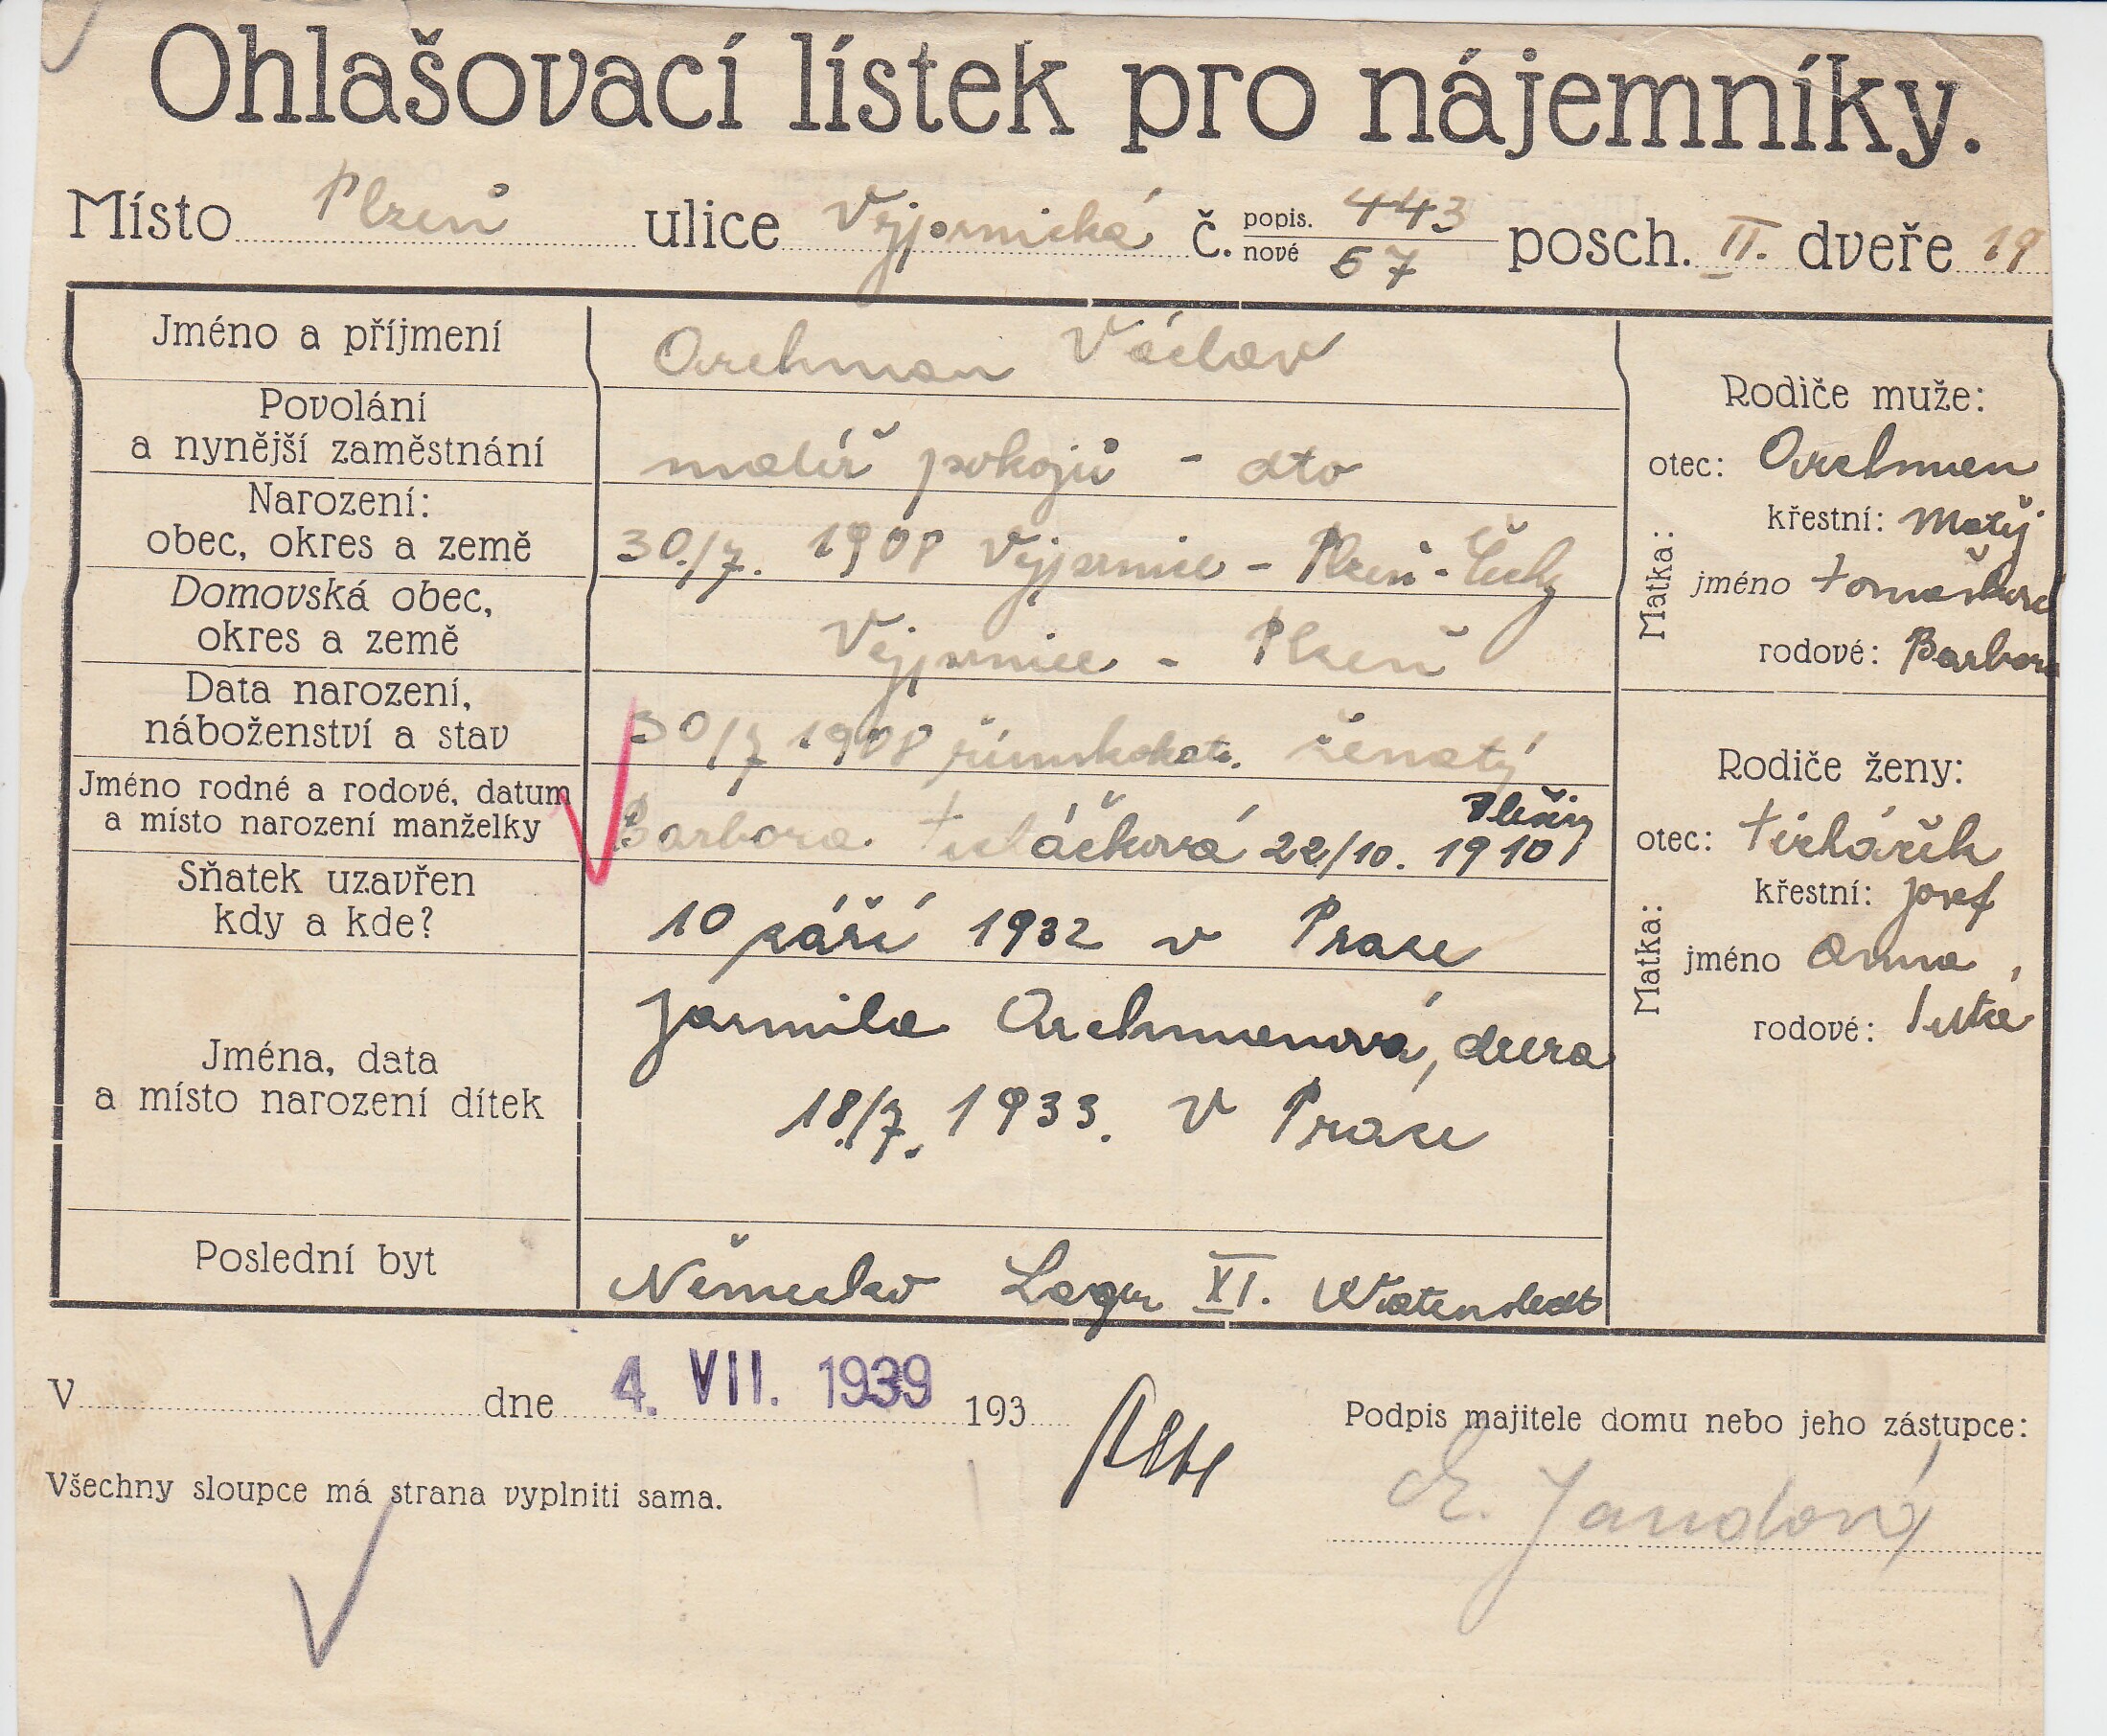 Ohlašovací lístek pro nájemníky.
Místo Plzeň ulice Vejprnická č. popis. 443 nové 57 posch. II. dveře 19
Jméno a příjmení Archman Václav
Povolání
a nynější zaměstnání malíř pokojů - dto
Narození:
obec, okres a země 30./7. 1908 Vejprnice - Plzeň - Čechy
Domovská obec,
okres a země Vejprnice - Plzeň
Data narození,
náboženství a stav 30/7 1908 římskokat. ženatý
Jméno rodné a rodové, datum
a místo narození manželky Barbora 22/10. 1910
Sňatek uzavřen
kdy a kde? 10 září 1932 v Praze
Jména, data
a místo narození dítek Jarmila Archmanová, dcera
18./7. 1933. v Praze
Poslední byt Německo Lager XI. Watenstedt
Rodiče muže:
otec: Archman
křestní: Matěj
Matka:
jméno
rodové: Barbora
Rodiče ženy:
otec:
křestní: Josef
Matka:
jméno Anna
rodové:
V dne 4. VII. 1939 193
Podpis majitele domu nebo jeho zástupce:
Všechny sloupce má strana vyplniti sama.